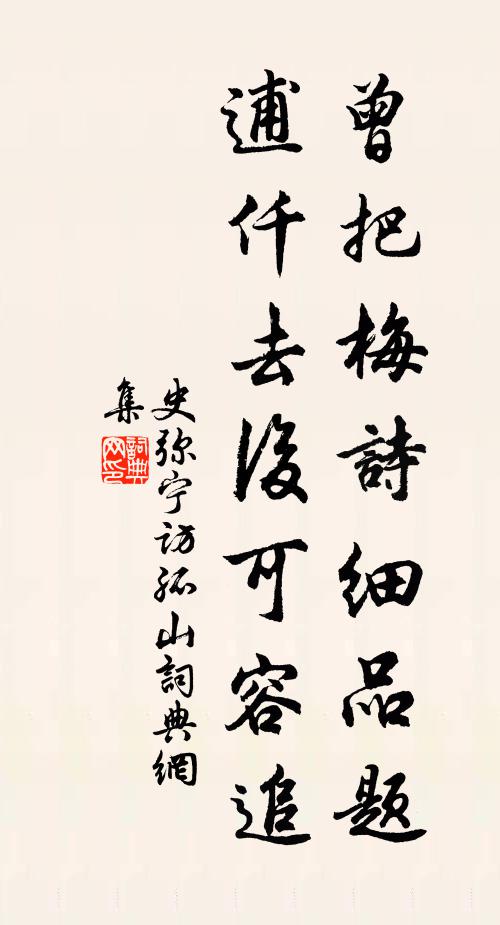 曾把梅詩細品题
逋仟去後可容追
史弥宁访孤山詞典網
集
詞典
网印